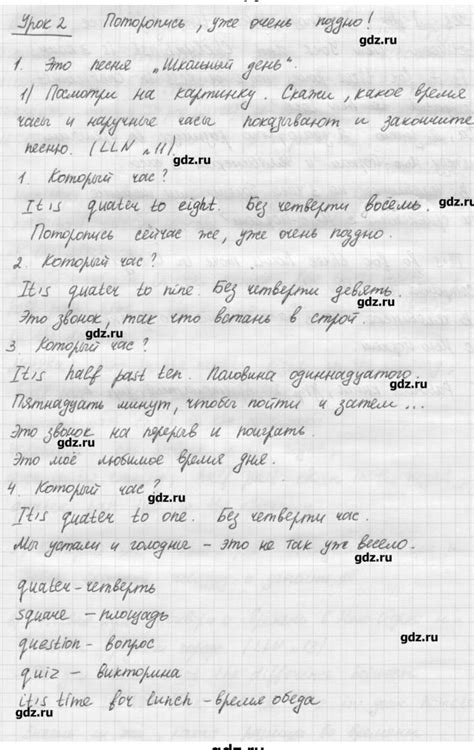 Урок 2 Поторопись, уже очень поздно!
gdz.ru
1. Это песня „Школьный день".
1) Посмотри на картинку. Скажи, какое время
часы и наручные часы показывают и закончите
песню. (LLN №11). gdz.ru
1. Который час?
It is quater to eight. Без четверти восемь. gdz.ru
Поторопись сейчас же, уже очень поздно.
2. Который час? gdz.ru
It is quater to nine. Без четверти девять.
Это звонок, так что встань в строй.
gdz.ru
3 Который час?
It is half past ten. Половина одиннадцатого.
gdz.ru
Пятнадцать минут, чтобы пойти и затем ...
Это звонок на перерыв и поиграть.
gdz.ru
Это моё любимое время дня.
4. Который час?
gdz.ru
It is quater to one. Без четверти час.
Мы устали и голодные – это не так уже весело.
gdz.ru
quater – четверть
square – площадь
question – вопрос
gdz.ru
quiz – викторина
it is time for lunch – время обеда
gdz.ru
gdz.ru